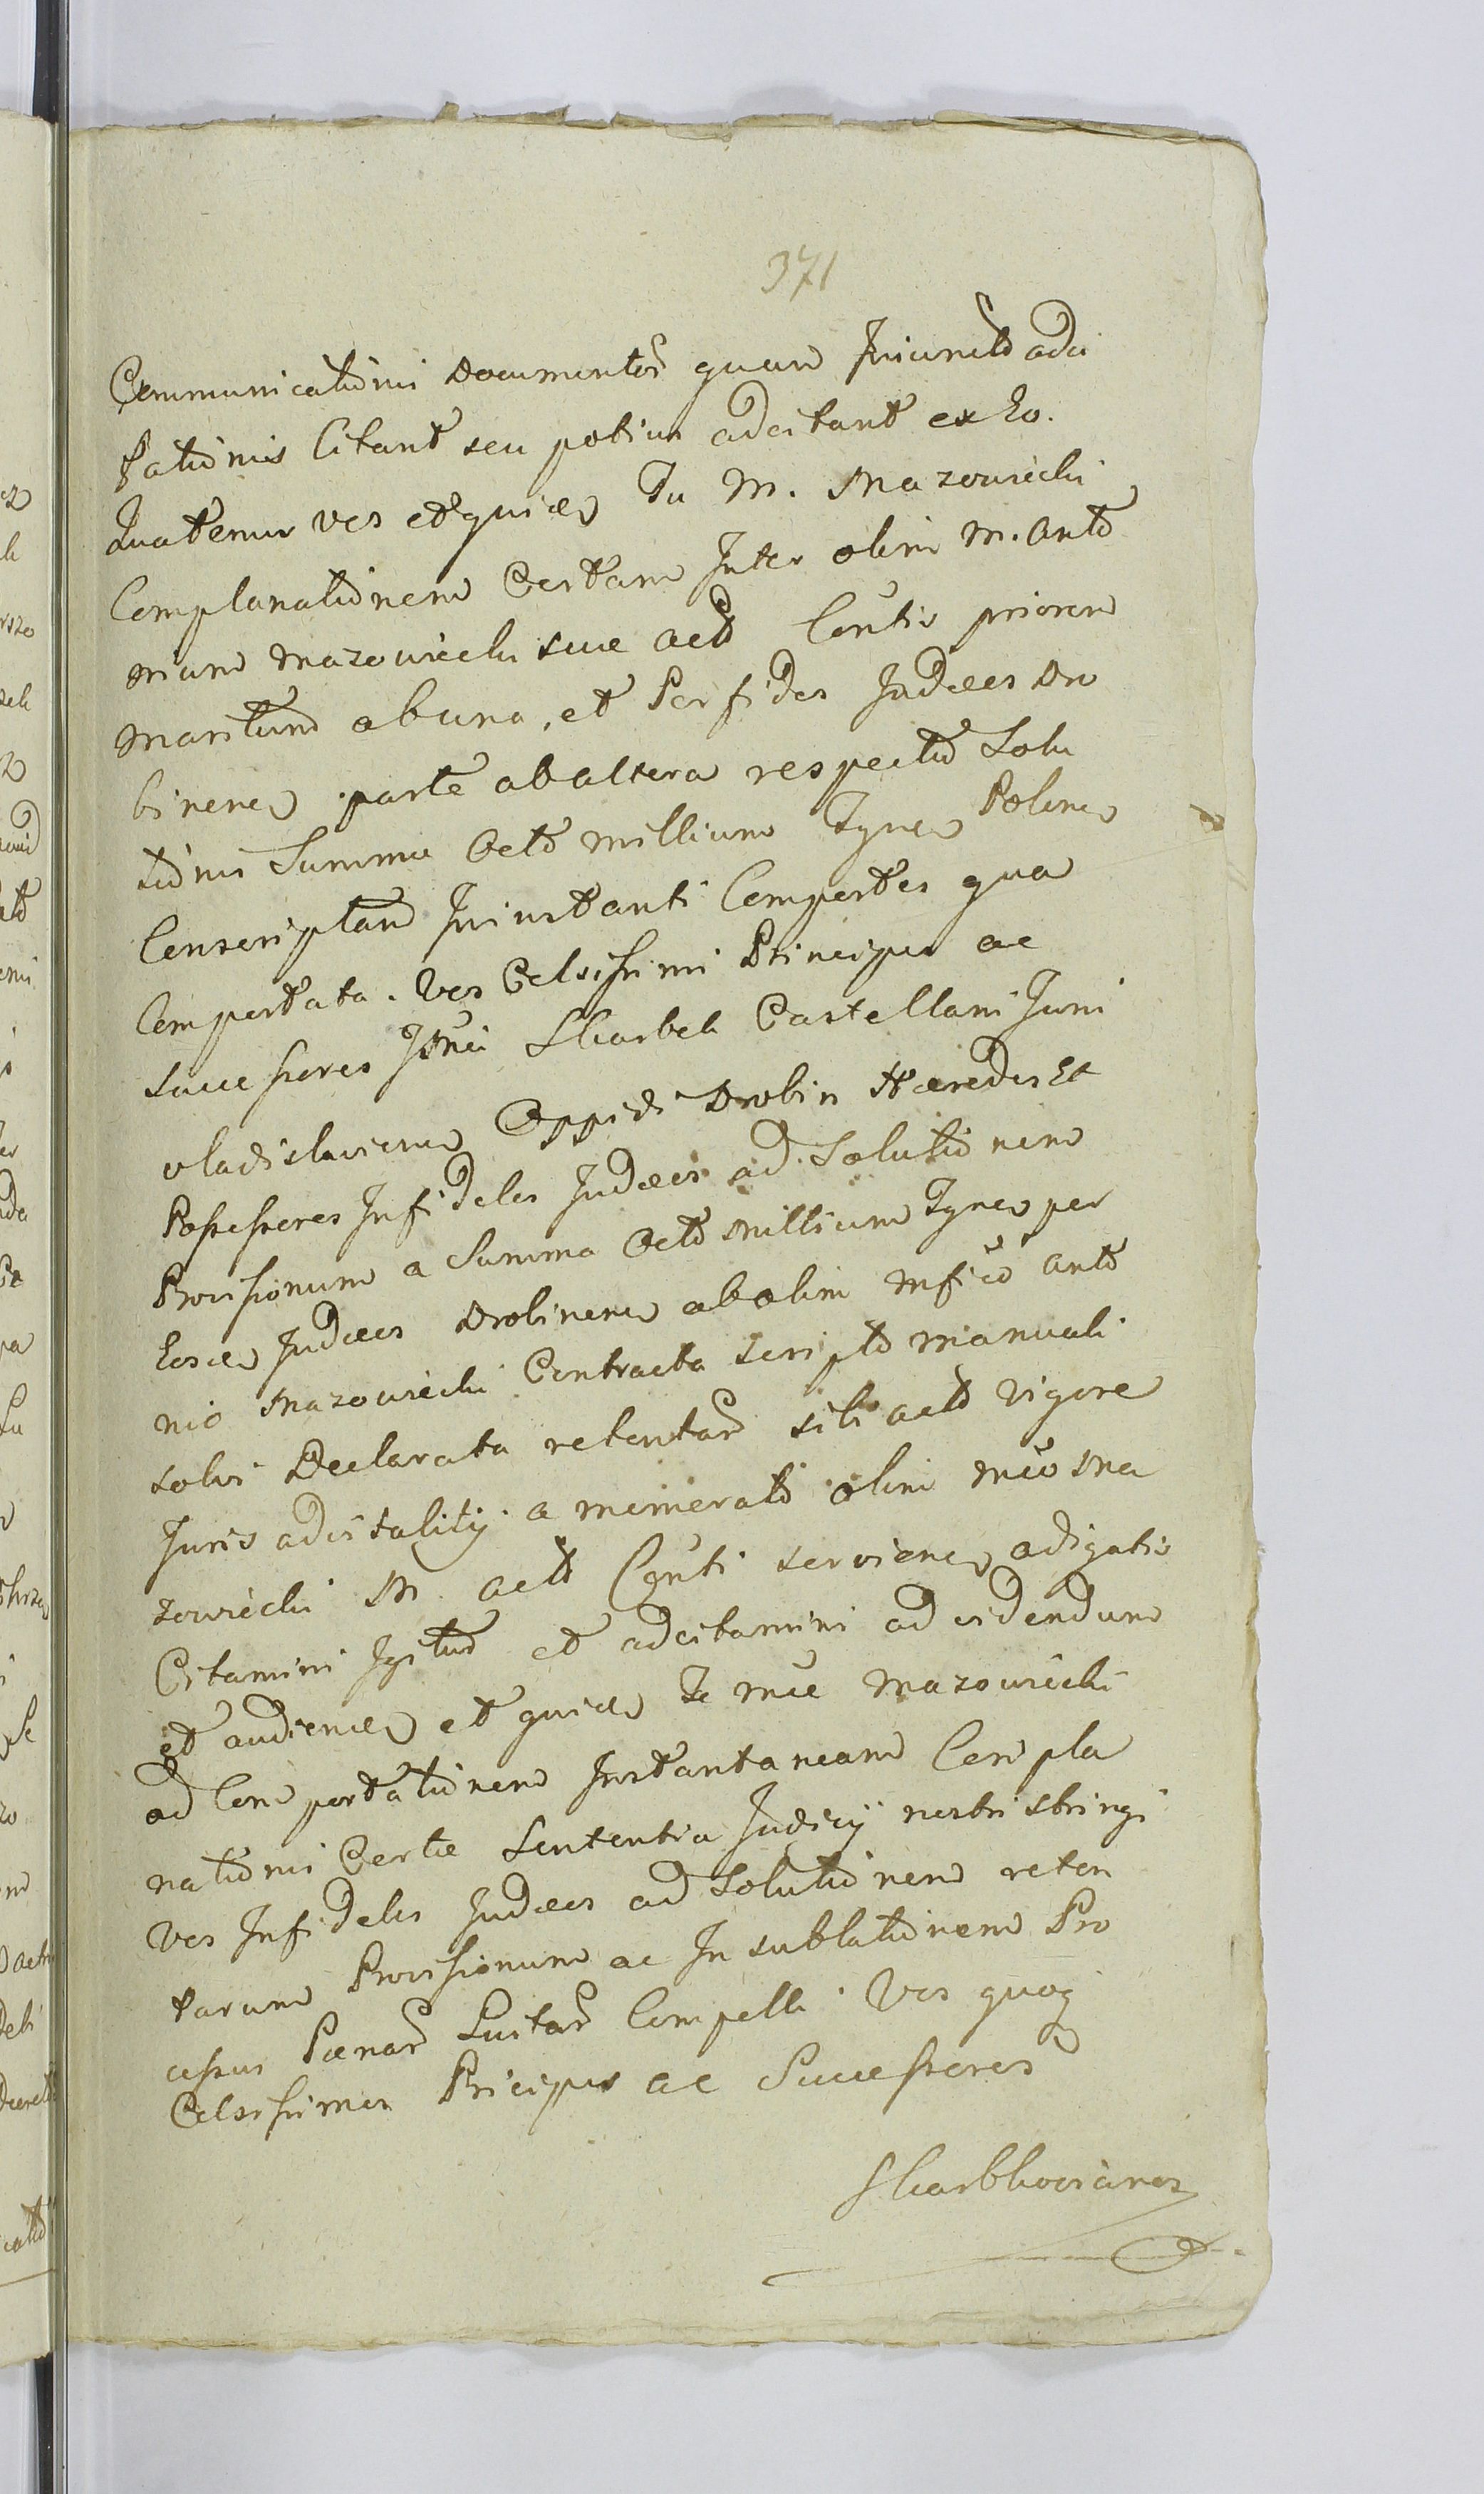 371
Communicationis Documentor quam Juncto adci
tationis Citant seu potius adcitant ex Eo.
Quatenus vos et quidem Tu M. Mazowiecki
Complanationem Certam Inter olim M. Anto
nium Mazowiecki suae Act Contis priorem
Maritum ab una, et Perfidos Judaeos Dro
binenes parte ab altera respectu Solu
tionis Summa Octo millium Tynes Polones
Conscriptam Juinstanti Comportes qua
Comportata. Vos Celsissimi Principes ac
Successores Jsmi Skarbek Castellani Juni
vladislaviene Oppidi Drobin Haeredes Et
Possessores Infideles Judaeos ad Solutionem
Provisionum a Summa Octo Millium Tynes per
Eosdem Judaeos Drobinenes ab olim Mfico Anto
nio Mazowiecki Contracta scripto manuali
solvi Declarata retentar sibi acto vigore
Juris advitalitij a memorato olim Mco Ma
zowiecki M. acto Conti serviene adigatis
Citamini Igitur et adcitamini ad videndum
et audiendes et quidem Te Mce Mazowiecki
ad Comportationem Instantaneam Compla
nationis Certae Sententia Judicij nostri stringi
Vos Infideles Judaeos ad Solutionem reten
tarum Provisionum ac In sublationem Pro
cessus Paenar Luitar Compelli. Vos quoq
Celsissimos Pricipes ac Successores
Skarbkovianos